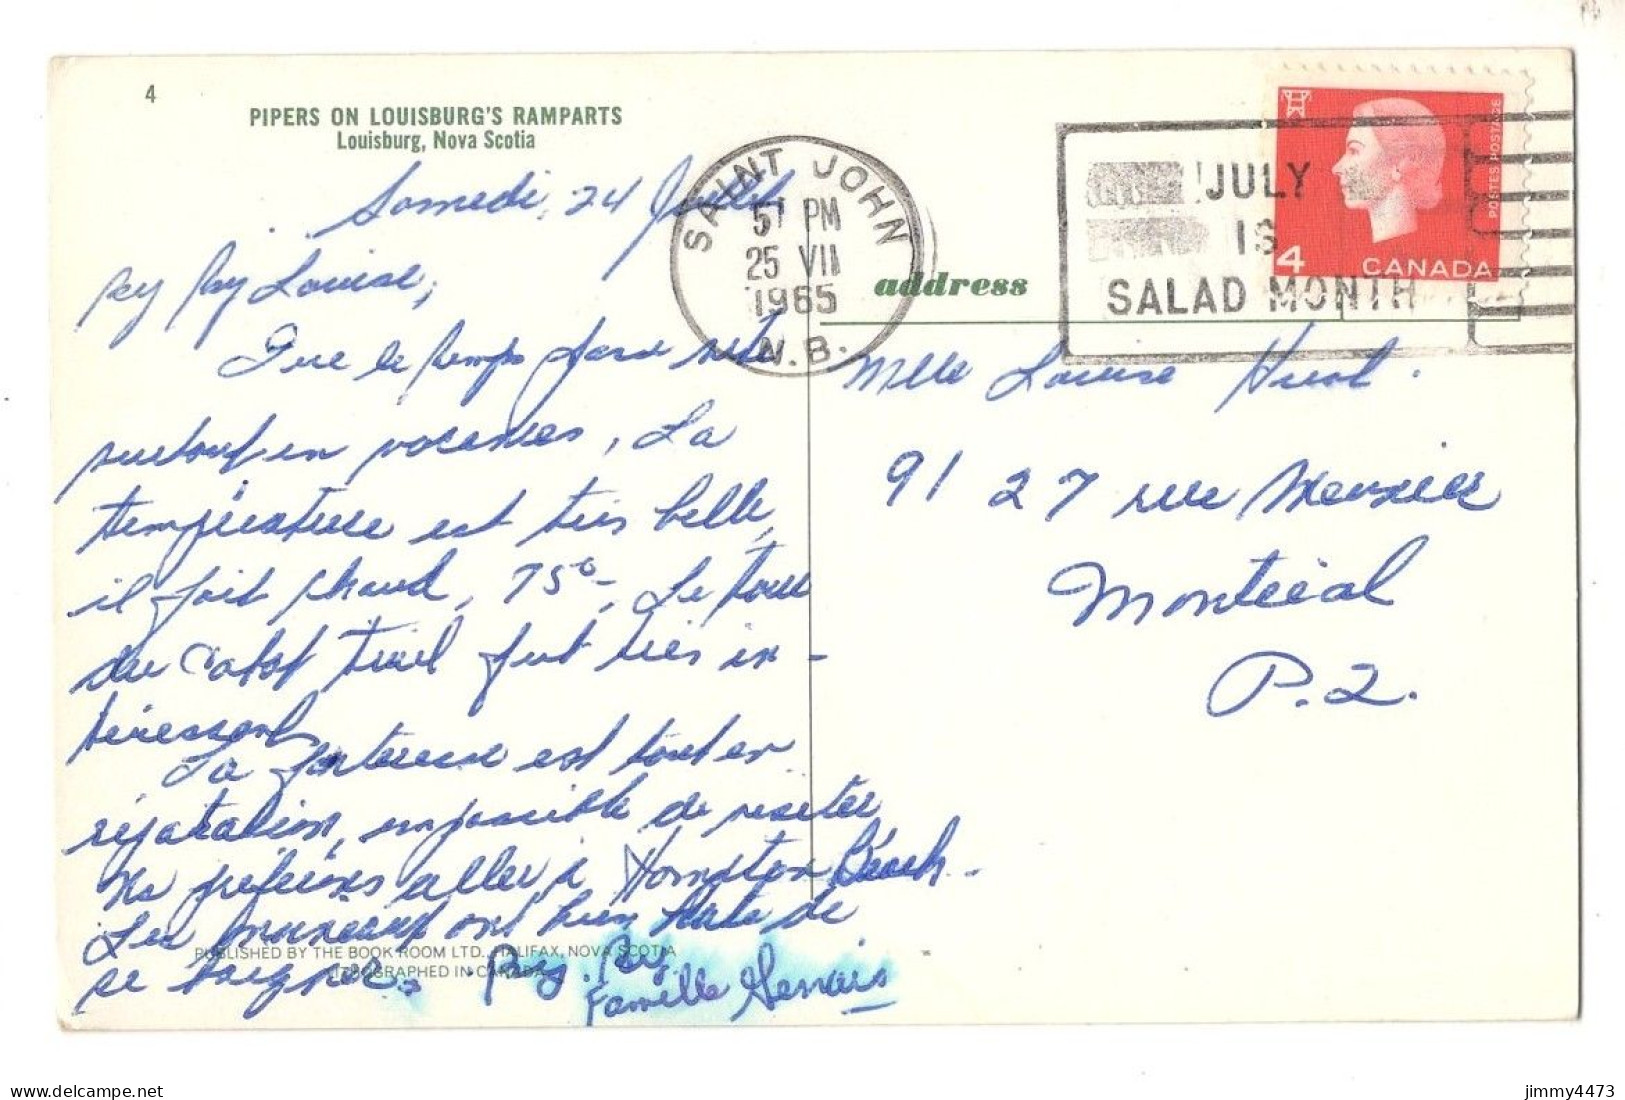 4
PIPERS ON LOUISBURG'S RAMPARTS
Louisburg, Nova Scotia
Samedi, 24 Juillet
Louise,
Que le temps passe vite
surtout en vacances, La
température est très belle,
il fait chaud, 75°, Le tour
du Cabot trail fut très in-
téressant
La forteresse est tout en
réparation, impossible de visiter
Ns préférons aller à Hampton Beach.
Les ont bien hâte de
se baigner.
Famille Gervais
PUBLISHED BY THE BOOK ROOM LTD., HALIFAX, NOVA SCOTIA
LITHOGRAPHED IN CANADA
SAINT JOHN
5 PM
25 VII
1965
N.B.
JULY
IS
SALAD MONTH
POSTES POSTAGE
4 CANADA
address
Mlle Louise Huot.
9127 rue
Montréal
P.Q.
jimmy4473
delcampe.net